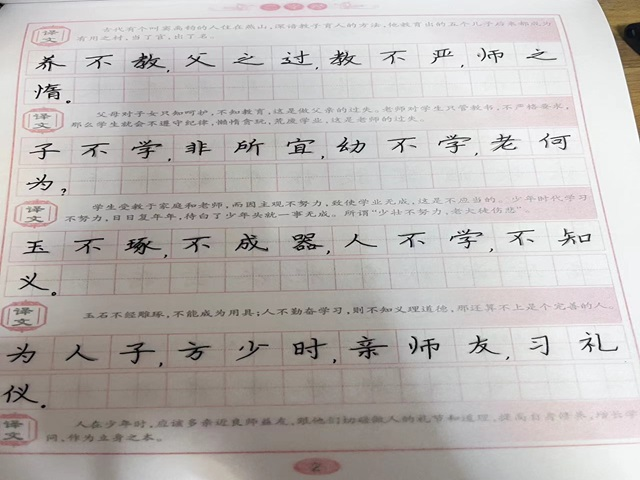 古代有个叫窦禹钧的人住在燕山,深谙教子育人的方法,他教育出的五个儿子后来都成为
译文
有用之材,当了官,出了名。
养不教,父之过,教不严,师之
惰。
译文
父母对子女只知呵护,不知教育,这是做父亲的过失。老师对学生只管教书,不严格要求,
那么学生就会不遵守纪律,懒惰贪玩,荒废学业,这是老师的过失。
子不学,非所宜,幼不学,老何
为?
译文
学生受教于家庭和老师,而因主观不努力,致使学业无成,这是不应当的。少年时代学习
不努力,日日复年年,待白了少年头就一事无成。所谓“少壮不努力,老大徒伤悲”。
玉不琢,不成器,人不学,不知
义。
译文
玉石不经雕琢,不能成为用具;人不勤奋学习,则不知义理道德,那还算不上是个完善的人。
为人子,方少时,亲师友,习礼
仪。
译文
人在少年时,应该多亲近良师益友,跟他们切磋做人的礼节和道理,提高自身修养,增长学
问,作为立身之本。
2